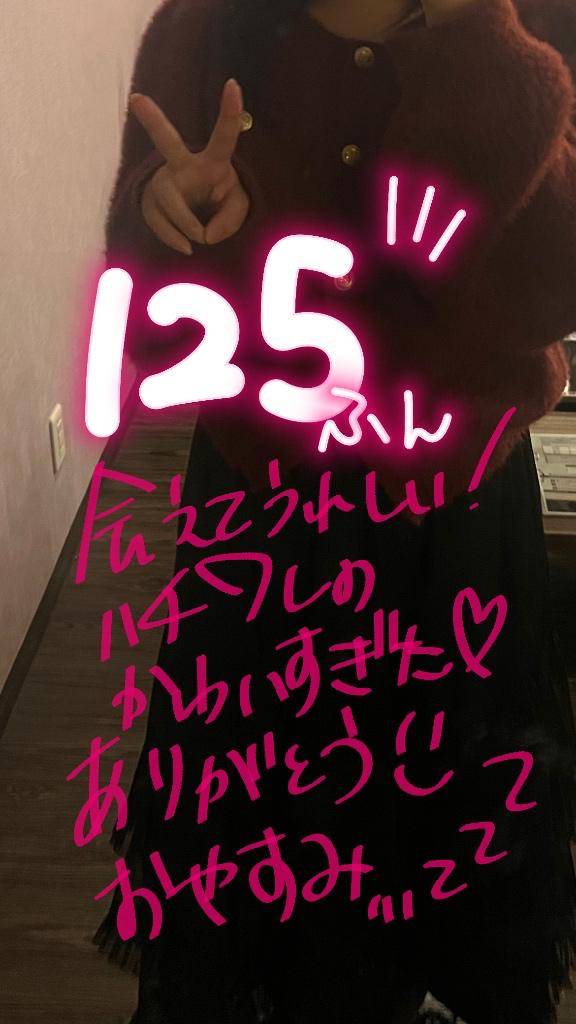 125
ふん
会えてうれしい!
ハチワレの
かわいすぎた♡
ありがとう
おやすみ,,,zzz